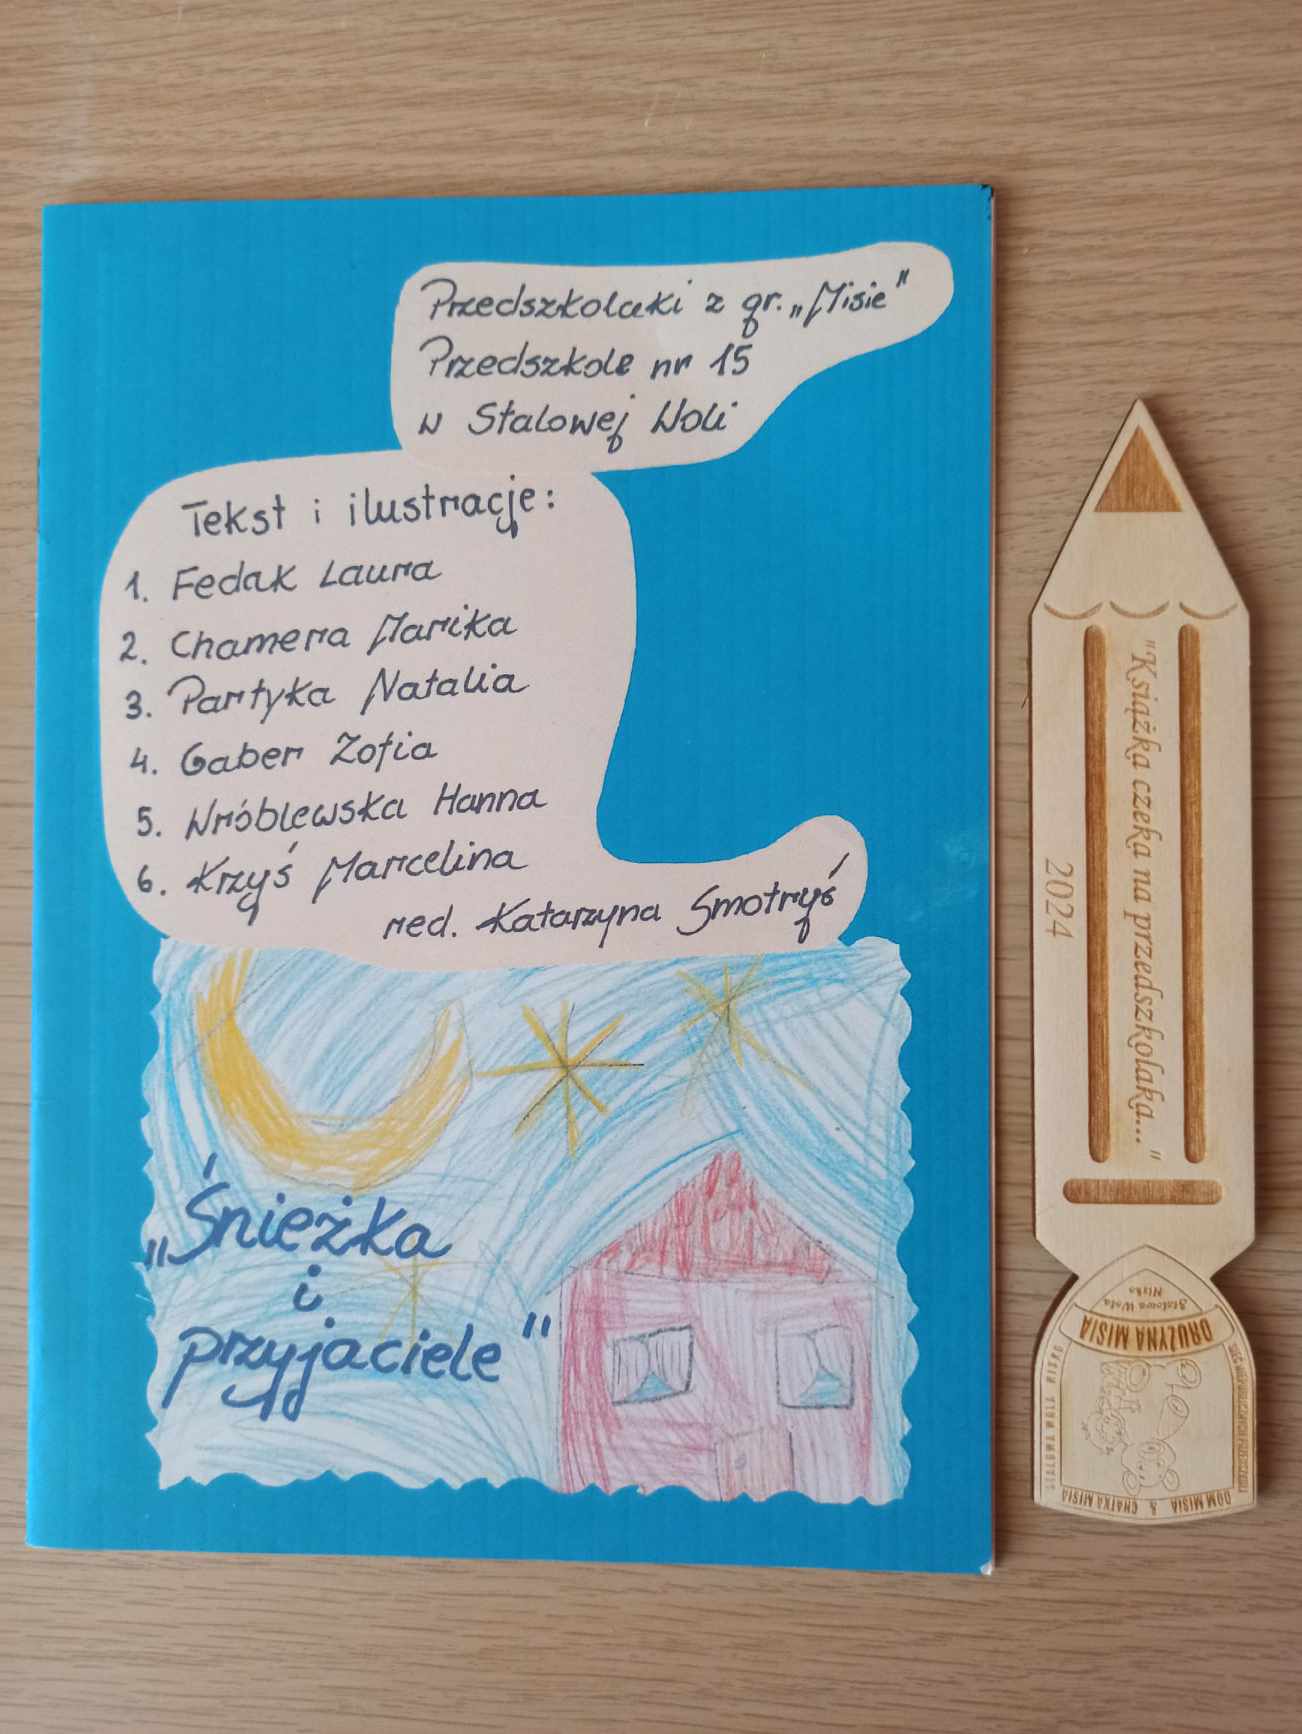 Przedszkolaki z gr. „Misie"
Przedszkole nr 15
w Stalowej Woli
Tekst i ilustracje:
1. Fedak Laura
2. Chamera Marika
3. Partyka Natalia
4. Gaber Zofia
5. Wróblewska Hanna
6. Krzyś Marcelina
red. Katarzyna Smotryś
„Śnieżka
i
przyjaciele"
"Książka czeka na przedszkolaka..."
2024
Stalowa Wola
Nisko
DRUŻYNA MISIA
STALOWA WOLA NISKO
DOM MISIA & CHATKA MISIA